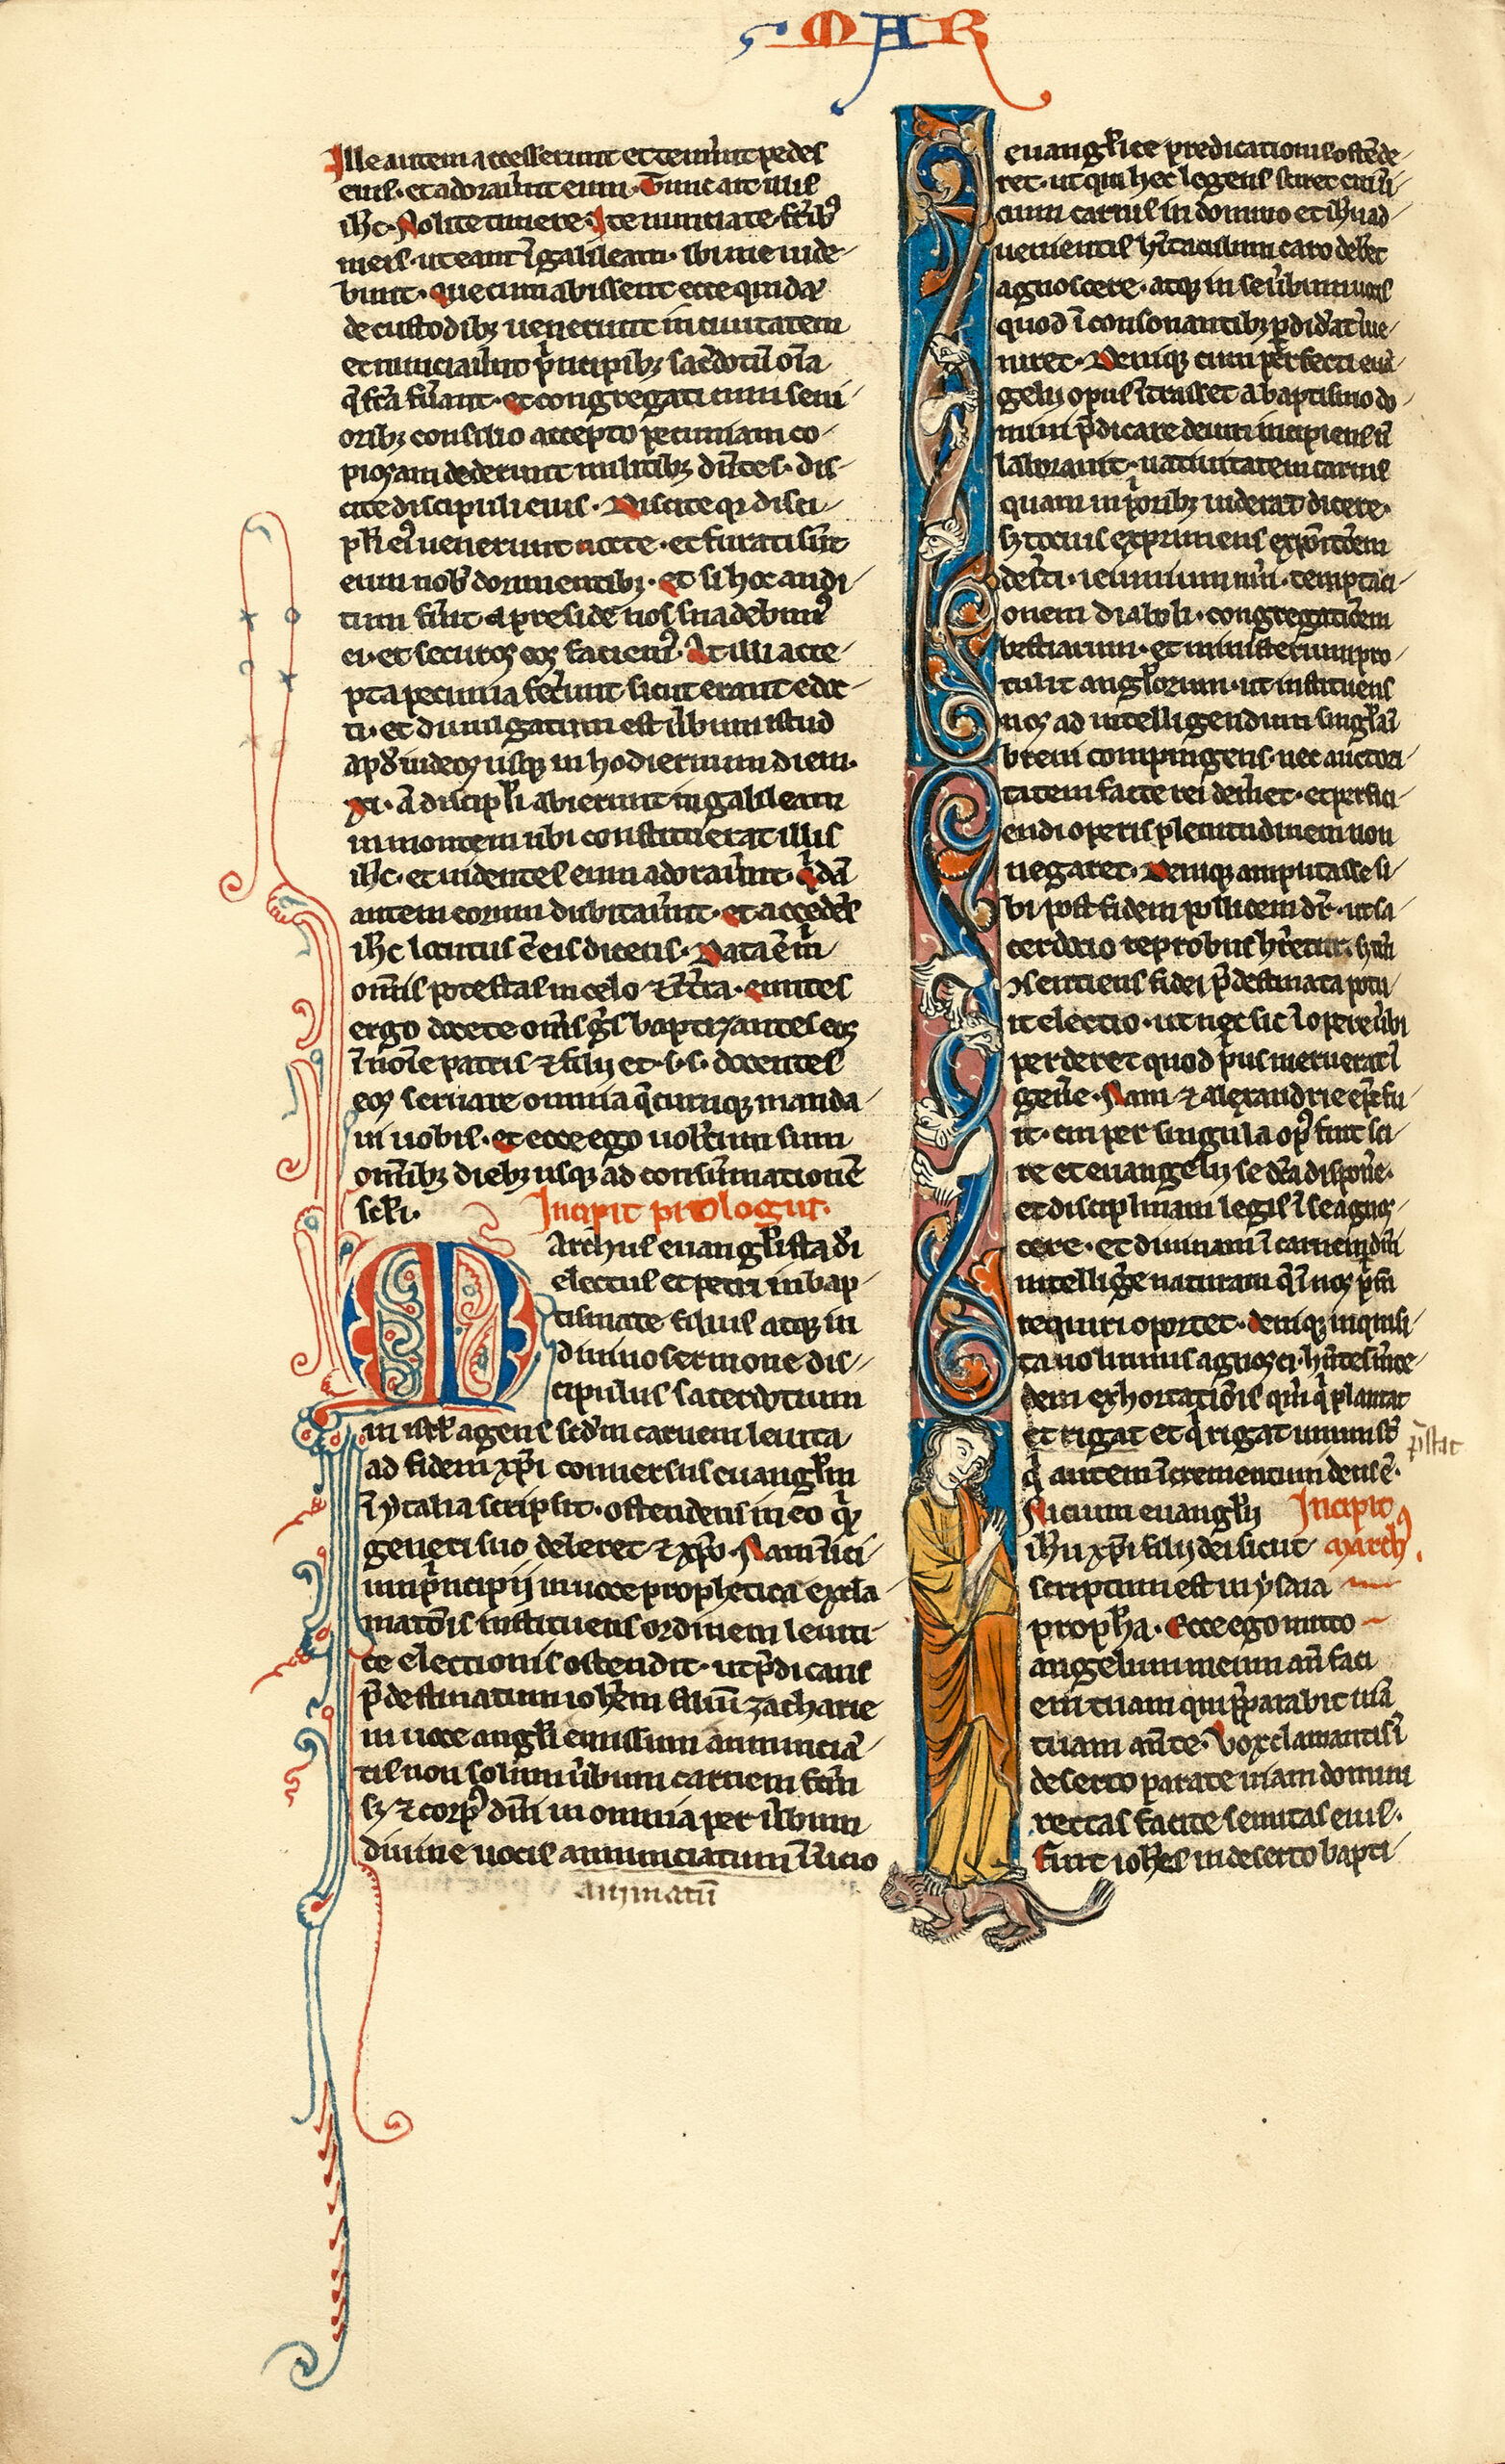 MAR
Ille autem accesserunt et tenu͛unt pedes
eius · et adorau͛unt eum · Tunc ait illis
ih̅c · Nolite timere · Ite nunciate fr̅ib᷒
meis · ut eant ĩ galileam · ibi me uide
bunt · Que cum abissent ecce quidā
de custodibꝫ uenerunt in ciuitatem
et nunciau͛unt p̍ncipibꝫ sac͛dotū oı̅a
q̄ fc̅a fu͛ant · et congregati cum seni
oribꝫ consilio accepto pecuniam co
piosam dederunt militibꝫ dn̅tes · dis
cite discipuli eius · Discite qꝛ disci
pl̅i ei᷒ uenerunt nocte · et furati sūt
eum nob̅ dormientibꝫ · et si hoc audi
tum fu͛it a preside nos suadebim᷒
ei · et securos uos faciem᷒ · At illi acce
pta pecunia fec͛unt sicut erant edoc
ti · et diuulgatum est u͛bum istud
apd̅ iudeos usqꝫ in hodiernum diem ·
xi · ā discipl̅i abierunt in galileam
in montem ubi constituerat illis
ih̅c · et uidentes eum adorau͛unt · q̍dā
autem eorum dubitau͛unt · et accedēs
ih̅c locutus ē eis dicens · Data ē m̍
om̅is potestas in celo ⁊ ĩ t͛ra · euntes
ergo docete om̅s gēs baptizantes eos
ĩ no̅ıe patris ⁊ filij et · s · s · docentes
eos seruare omnia q̄cumqꝫ manda
ui uobis · et ecce ego uobiscum sum
om̅ibꝫ diebꝫ usqꝫ ad consu̅mationē
scl̅i · Incipit prologus ·
Marchus euangl̅ista dı̅
electus et petri in bap
tismate filius atqꝫ in
diuino sermone dis
cipulus sacerdotium
in isrl̅ agens scd̅m carnem leuita
ad fidem xp̅i conuersus euangl̅m
ĩ ytalia scripsit · ostendens in eo q̍
generi suo deberet ⁊ xp̅o · Nam ĩici
um p̍ncipij in uoce prophetica excla
matōis instituens ordinem leuiti
ce electionis ostendit · ut p̄dicans
p̄destinatum ioh̅em filiū zacharie
in uoce angl̅i emissum annuncia
tis non solum u͛bum carnem fc̅m
sꝫ ⁊ corp᷒ dn̅i in omnia per u͛bum
diuine uocis annunciatum ĩicio
animatū
euangl̅ice predicationis ostēde
ret · ut qui hec legens sciret cui ĩi
cium carnis in domino et ih̅u ad
uenientis h̅itaculum caro deb͛et
agnoscere · atqꝫ in se u͛bum uocis
quod ĩ consonantibꝫ p͛did͛at ĩue
niret · Deniqꝫ cum perfecti euā
gelij opus ĩtrasset a baptismo do
mini p̄dicare deum incipiens ñ
laborauit · natiuitatem carnis
quam in p̍oribꝫ uiderat dicere ·
sꝫ tocius exprimens expōitōem
des͛ti · ieiunium nu͛i · temptaci
onem diaboli · congregatōem
bestiarum · et ministerium pro
tulit angl̅orum · ut instituens
nos ad intelligendum singl̅a ĩ
breui compingens · nec auctori
tatem facte rei dem͛et · et perfici
endi operis plenitudinem non
negaret · Deniqꝫ amputasse si
bi post fidem pollicem dr̅ · ut sa
cerdocio reprobus h͛retur · s; tm̅
ↄsentiens fidei p̄destinata potu
it electio · ut nec sic ĩ opere u͛bi
perderet quod p̍us meruerat ĩ
gen͛e · Nam ⁊ alexandrie ep̅c fu
it · cui᷒ per singula op᷒ fuit sci
re et euangelij se dc̅a dispon͛e ·
et disciplinam legis ĩ se agnos
cere · et diuinam ĩ carne dn̅i
intellig͛e naturam q̄ ĩ nos p̍m
requiri oportet · deniqꝫ inquisi
ta uolumus agnosci · h̅ntes m͛ce
dem exhortatiōis qm̅ q̍ plantat
et rigat et q̍ rigat unum s̅t
p̄stat
q̍ autem ĩcrementum de᷒ ē ·
Inicium euangl̅ij Incipit
ih̅u xp̅i filij dei sicut march᷒ ·
scriptum est in ysaia
proph̅a · Ecce ego mitto
angelum meum an̅ faci
em tuam qui p̄parabit uiā
tuam an̅ te · Vox clamantis ĩ
deserto parate uiam domini
rectas facite semitas eius ·
Fuit ioh̅es in deserto bapti